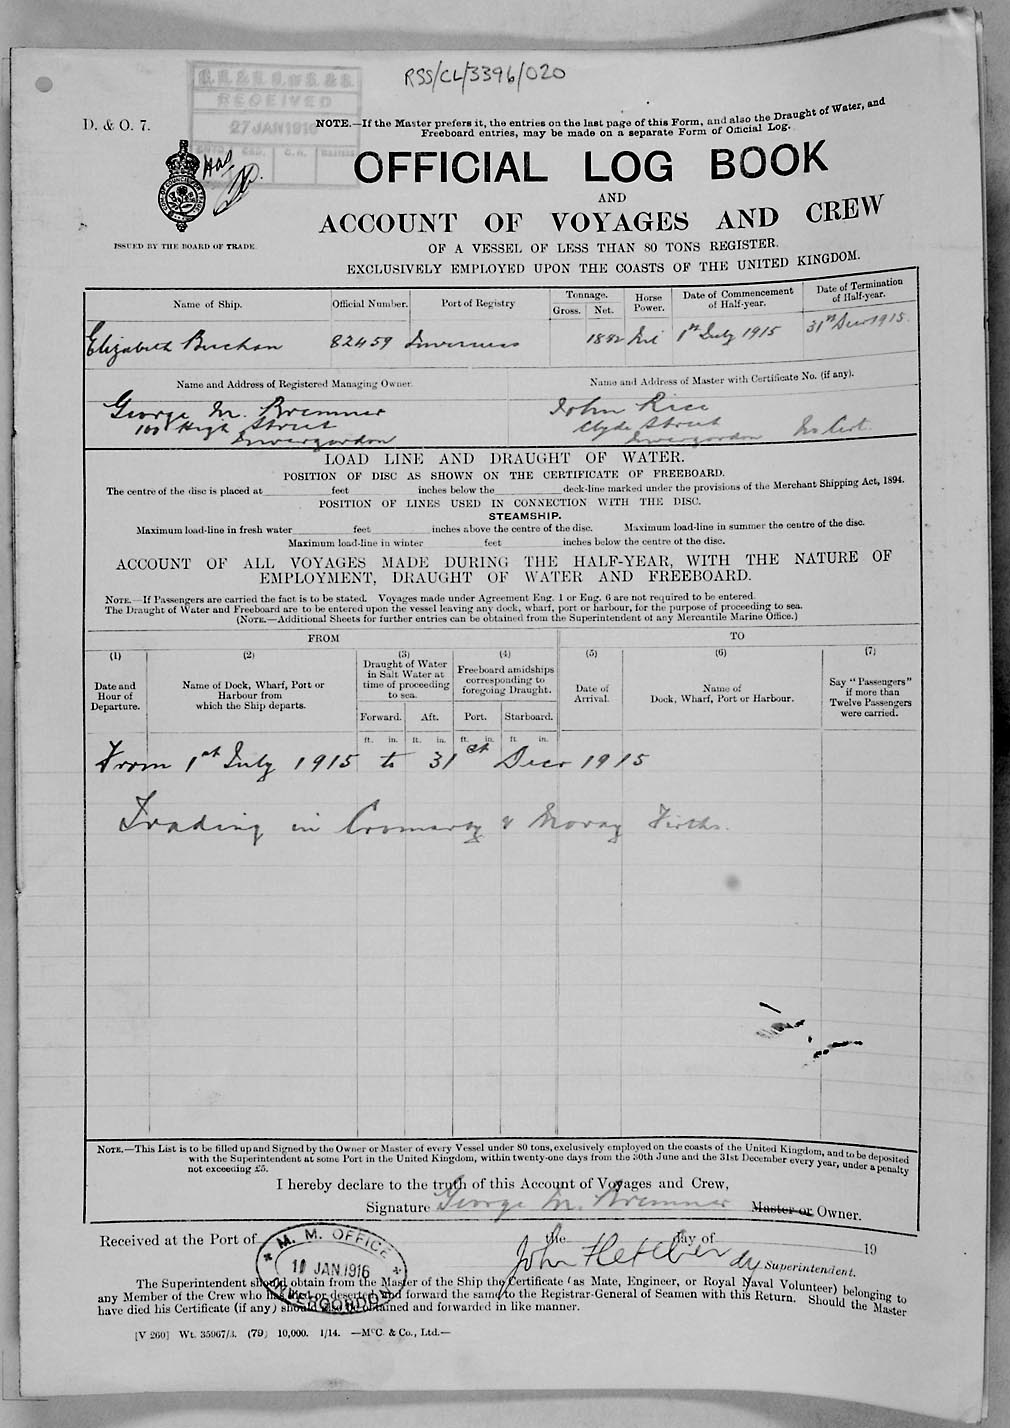 RSS/CL/3396/020
RECEIVED
27 JAN 1916
D. & O. 7.
NOTE.—If the Master prefers it, the entries on the last page of this Form, and also the Draught of Water, and
Freeboard entries, may be made on a separate Form of Official Log.
OFFICIAL LOG BOOK
AND
ACCOUNT OF VOYAGES AND CREW
ISSUED BY THE BOARD OF TRADE.
OF A VESSEL OF LESS THAN 80 TONS REGISTER.
EXCLUSIVELY EMPLOYED UPON THE COASTS OF THE UNITED KINGDOM.
Name of Ship. Official Number. Port of Registry Tonnage. Gross. Net. Horse Power. Date of Commencement of Half-year. Date of Termination of Half-year.
Elizabeth Buchan 82459 Inverness Nil 1st July 1915 31st Decr 1915.
Name and Address of Registered Managing Owner. Name and Address of Master with Certificate No. (if any).
George M. Bremner John Rice
100 High Street Clyde Street
Invergordon Invergordon No Cert.
LOAD LINE AND DRAUGHT OF WATER.
POSITION OF DISC AS SHOWN ON THE CERTIFICATE OF FREEBOARD.
The centre of the disc is placed at feet inches below the deck-line marked under the provisions of the Merchant Shipping Act, 1894.
POSITION OF LINES USED IN CONNECTION WITH THE DISC.
STEAMSHIP.
Maximum load-line in fresh water feet inches above the centre of the disc. Maximum load-line in summer the centre of the disc.
Maximum load-line in winter feet inches below the centre of the disc.
ACCOUNT OF ALL VOYAGES MADE DURING THE HALF-YEAR, WITH THE NATURE OF
EMPLOYMENT, DRAUGHT OF WATER AND FREEBOARD.
NOTE.—If Passengers are carried the fact is to be stated. Voyages made under Agreement Eng. 1 or Eng. 6 are not required to be entered.
The Draught of Water and Freeboard are to be entered upon the vessel leaving any dock, wharf, port or harbour, for the purpose of proceeding to sea.
(NOTE.—Additional Sheets for further entries can be obtained from the Superintendent of any Mercantile Marine Office.)
FROM TO
(1) (2) (3) (4) (5) (6) (7)
Date and Hour of Departure. Name of Dock, Wharf, Port or Harbour from which the Ship departs. Draught of Water in Salt Water at time of proceeding to sea. Freeboard amidships corresponding to foregoing Draught. Date of Arrival. Name of Dock, Wharf, Port or Harbour. Say "Passengers" if more than Twelve Passengers were carried.
Forward. Aft. Port. Starboard.
ft. in. ft. in. ft. in. ft in.
From 1st July 1915 to 31st Decr 1915
Trading in Cromarty & Moray Firths.
NOTE.—This List is to be filled up and Signed by the Owner or Master of every Vessel under 80 tons, exclusively employed on the coasts of the United Kingdom, and to be deposited
with the Superintendent at some Port in the United Kingdom, within twenty-one days from the 30th June and the 31st December every year, under a penalty
not exceeding £5.
I hereby declare to the truth of this Account of Voyages and Crew,
Signature George M. Bremner Master or Owner.
Received at the Port of the day of 19
M. M. OFFICE
11 JAN. 1916
INVERGORDON
John Fletcher dy Superintendent.
The Superintendent should obtain from the Master of the Ship the Certificate (as Mate, Engineer, or Royal Naval Volunteer) belonging to
any Member of the Crew who has died or deserted and forward the same to the Registrar-General of Seamen with this Return. Should the Master
have died his Certificate (if any) should be obtained and forwarded in like manner.
[V 260] Wt. 35967/3. (79) 10,000. 1/14. —McC. & Co., Ltd.—